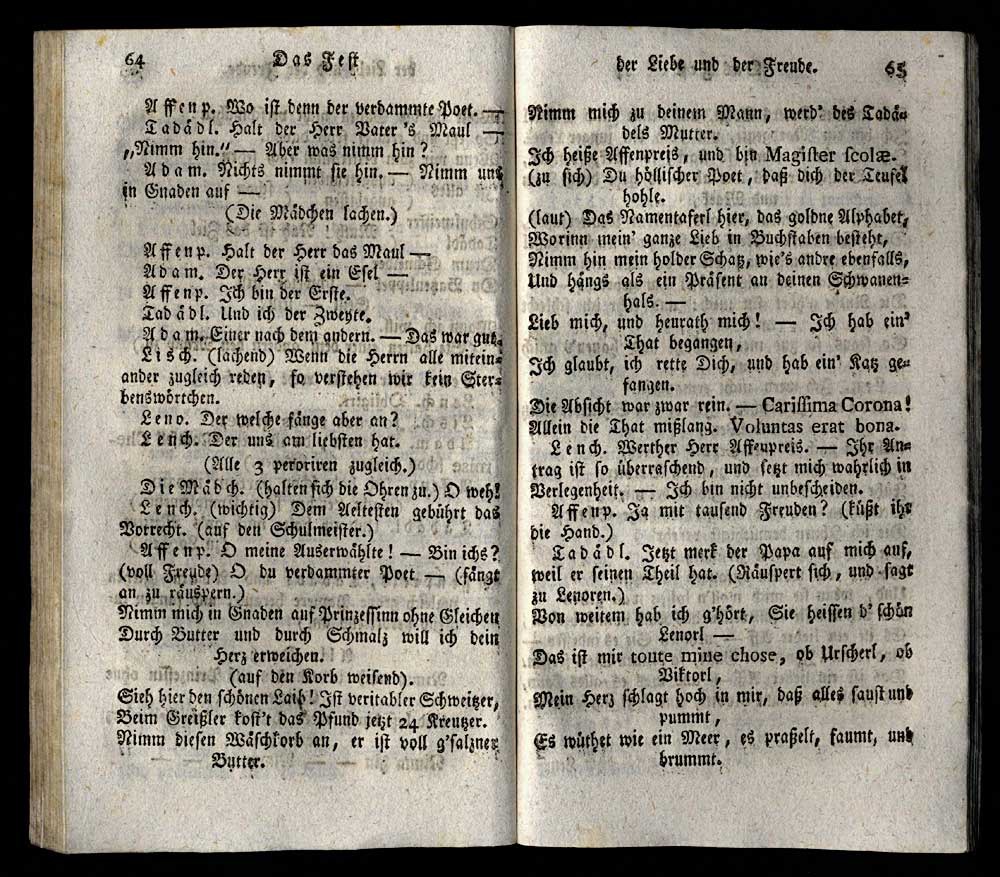 64 Das Fest
Affenp. Wo ist denn der verdammte Poet. —
Tadädl. Halt der Herr Vater 's Maul —
„Nimm hin.“ — Aber was nimm hin?
Adam. Nichts nimmt sie hin. — Nimm uns
in Gnaden auf —
(Die Mädchen lachen.)
Affenp. Halt der Herr das Maul —
Adam. Der Herr ist ein Esel —
Affenp. Ich bin der Erste.
Tadädl. Und ich der Zweyte.
Adam. Einer nach dem andern. — Das war gut.
Lisch. (lachend) Wenn die Herrn alle mitein=
ander zugleich reden, so verstehen wir kein Ster=
benswörtchen.
Leno. Der welche fänge aber an?
Lench. Der uns am liebsten hat.
(Alle 3 peroriren zugleich.)
Die Mädch. (halten sich die Ohren zu.) O weh!
Lench. (wichtig) Dem Aeltesten gebührt das
Vorrecht. (auf den Schulmeister.)
Affenp. O meine Auserwählte! — Bin ichs?
(voll Freude) O du verdammter Poet — (fängt
an zu räuspern.)
Nimm mich in Gnaden auf Prinzessinn ohne Gleichen
Durch Butter und durch Schmalz will ich dein
Herz erweichen.
(auf den Korb weisend).
Sieh hier den schönen Laib! Ist veritabler Schweitzer,
Beim Greißler kost't das Pfund jetzt 24 Kreutzer.
Nimm diesen Wäschkorb an, er ist voll g'salzner
Butter.
der Liebe und der Freude. 65
Nimm mich zu deinem Mann, werd' des Tadä=
dels Mutter.
Ich heiße Affenpreis, und bin Magister scolæ.
(zu sich) Du höllischer Poet, daß dich der Teufel
hohle.
(laut) Das Namentaferl hier, das goldne Alphabet,
Worinn mein' ganze Lieb in Buchstaben besteht,
Nimm hin mein holder Schatz, wie's andre ebenfalls,
Und hängs als ein Präsent an deinen Schwanen=
hals. —
Lieb mich, und heurath mich! — Ich hab ein'
That begangen,
Ich glaubt, ich rette Dich, und hab ein' Katz ge=
fangen.
Die Absicht war zwar rein. — Carissima Corona!
Allein die That mißlang. Voluntas erat bona.
Lench. Werther Herr Affenpreis. — Ihr An=
trag ist so überraschend, und setzt mich wahrlich in
Verlegenheit. — Ich bin nicht unbescheiden.
Affenp. Ja mit tausend Freuden? (küßt ihr
die Hand.)
Tadädl. Jetzt merk der Papa auf mich auf,
weil er seinen Theil hat. (Räuspert sich, und sagt
zu Lenoren.)
Von weitem hab ich g'hört, Sie heissen d' schön
Lenorl —
Das ist mir toute mine chose, ob Urscherl, ob
Viktorl,
Mein Herz schlagt hoch in mir, daß alles saust und
pummt,
Es wüthet wie ein Meer, es praßelt, faumt, und
brummt.